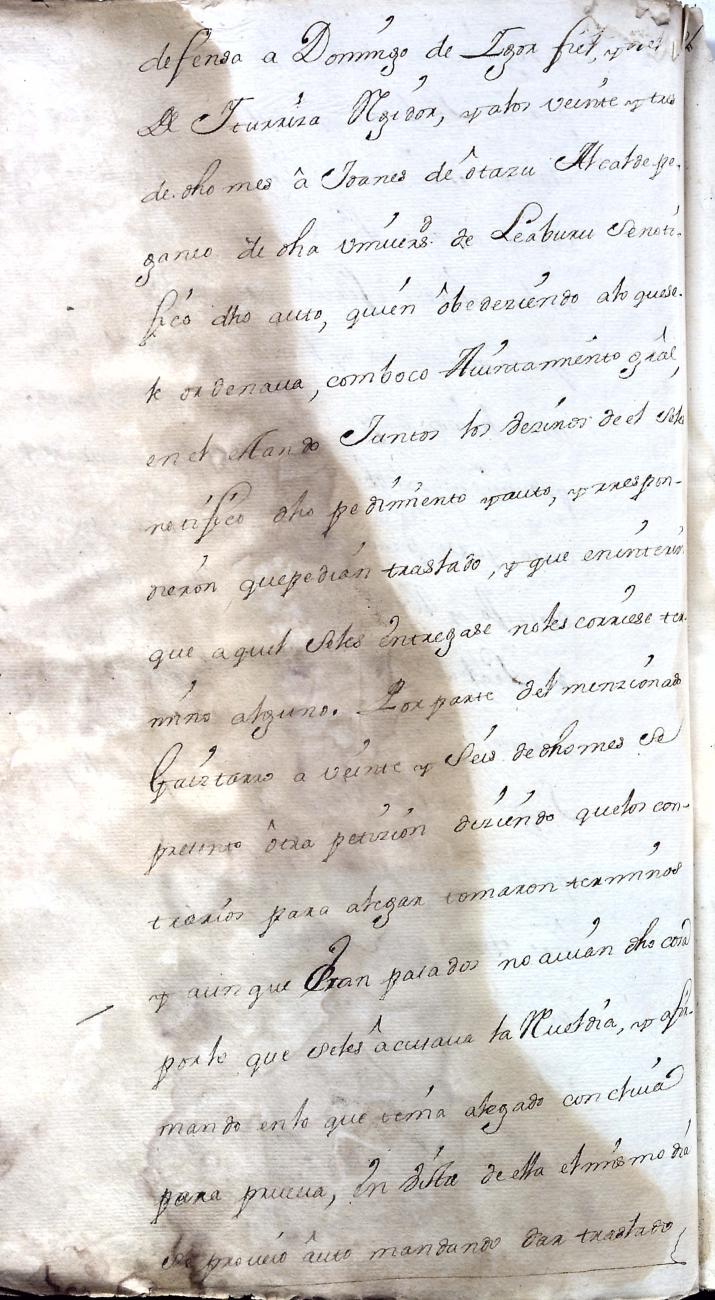 defensa a Domingo de Igor fiel, y
De Iturriza Regidor, y alos veinte y tres
de dho mes â Joanes de ôtazu Alcalde pe-
daneo de dha Univers.d de Leaburu se noti-
ficó dho auto, quién ôbedeziéndo alo quese
le ordenaua, comboco Aiuntamiento grâl,
en el estando Juntos los vezinos de el Seles
notifico dho pedimiento y auto, y rrespon-
dierón que pedian traslado, y que eninterin
que aquel seles entregase noles corriese ter
mino alguno. Por parte del menzionado
Gaiztarro a veinte y Seis de dho mes Se
presento ôtra petizión diziéndo quelos con-
trarios para alegar tomaron terminos
y aunque Eran pasados no auian dho cosa
por lo que seles âcusaua la Rueldia, y afir-
mando enlo que tenia alegado concluia
para prueua, En vista de ella el mismo dia
Se proueió âuto mandando dar traslado